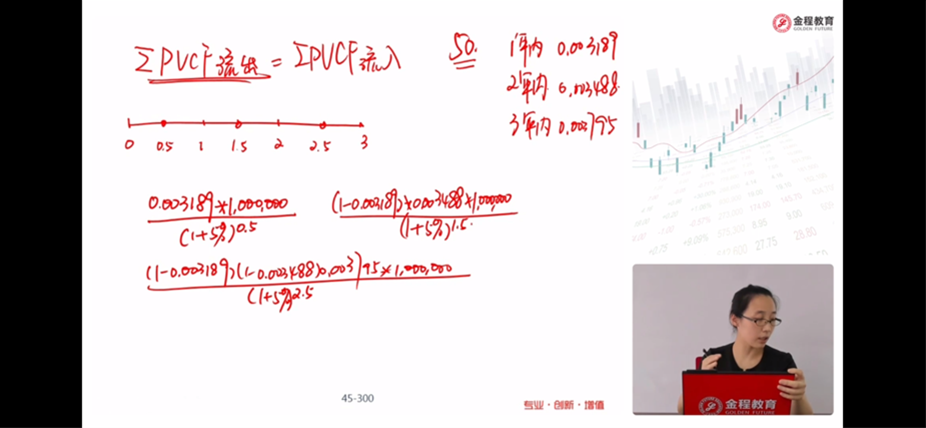 金程教育
GOLDEN FUTURE
ΣPVCF流出 = ΣPVCF流入
50.
1年内 0.003189
2年内 0.003488
3年内 0.003795
0 0.5 1 1.5 2 2.5 3
0.003189×1,000,000
(1+5%)^0.5
(1-0.003189)×0.003488×1,000,000
(1+5%)^1.5
(1-0.003189)(1-0.003488)0.003795×1,000,000
(1+5%)^2.5
8.95
9.00
27.75
28.80
45-300
专业·创新·增值
金程教育
GOLDEN FUTURE